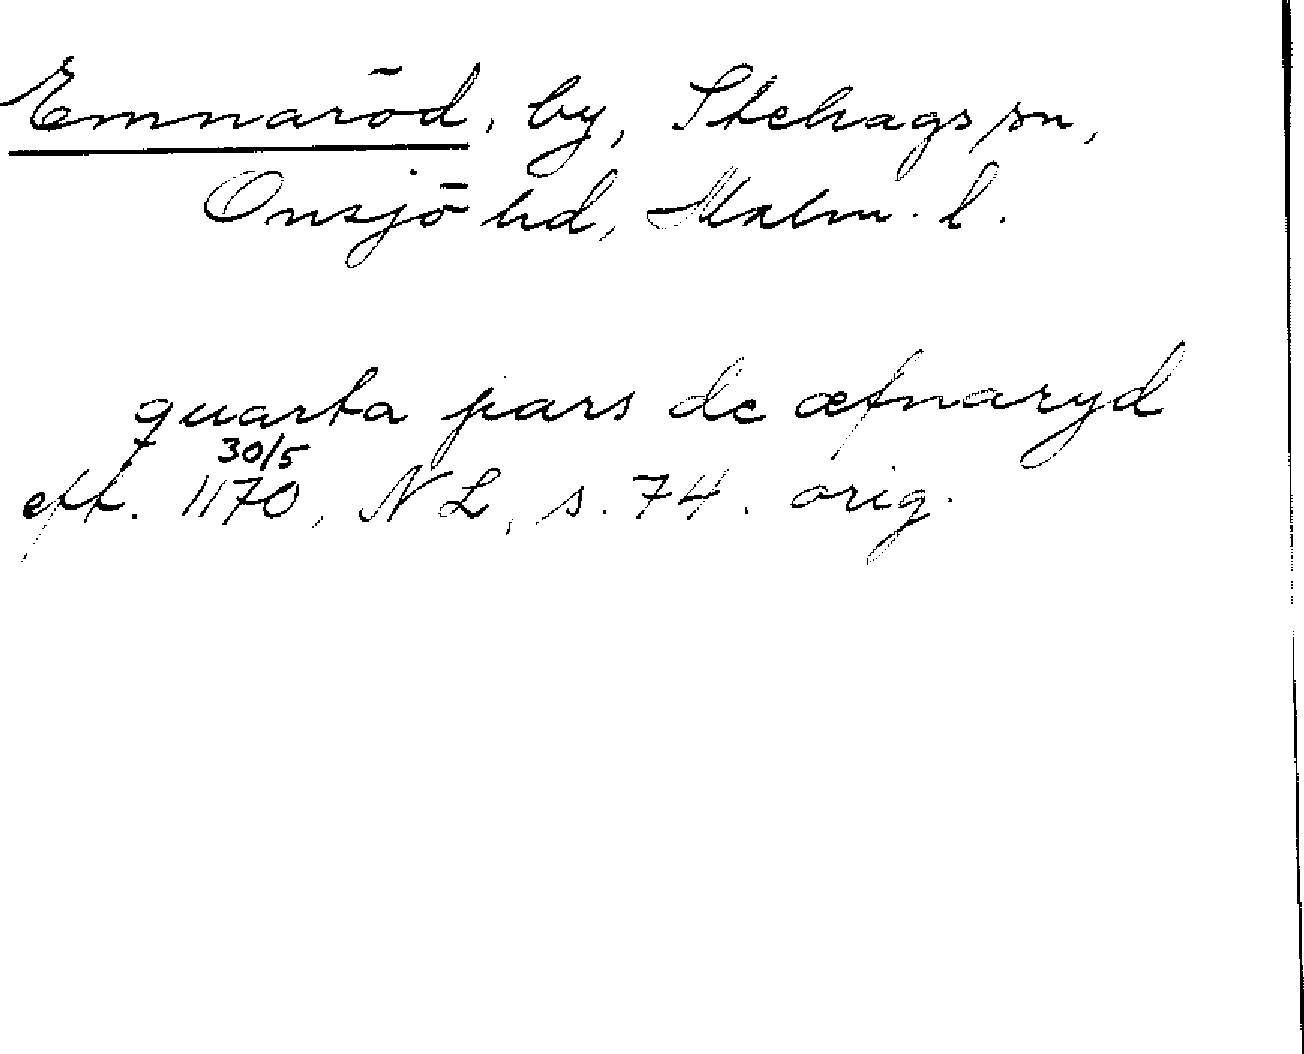 Emnaröd, by, Stehags sn,
Onsjö hd, Malm. l.
quarta pars de æfnaryd
30/5
eft. 1170, NL, s. 74. orig.